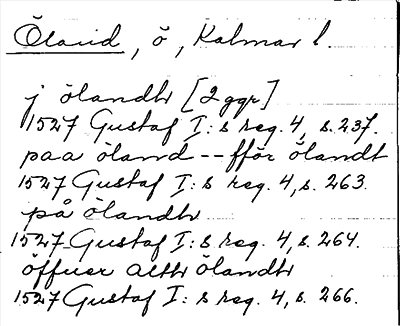 Öland, ö, Kalmar l.
j ölandh [2 ggr]
1527 Gustaf I:s reg. 4, s. 237.
paa öland -- fför ölandt
1527 Gustaf I:s reg. 4, s. 263.
på ölandh
1527 Gustaf I:s reg. 4, s. 264.
öffuer alth ölandh
1527 Gustaf I:s reg. 4, s. 266.